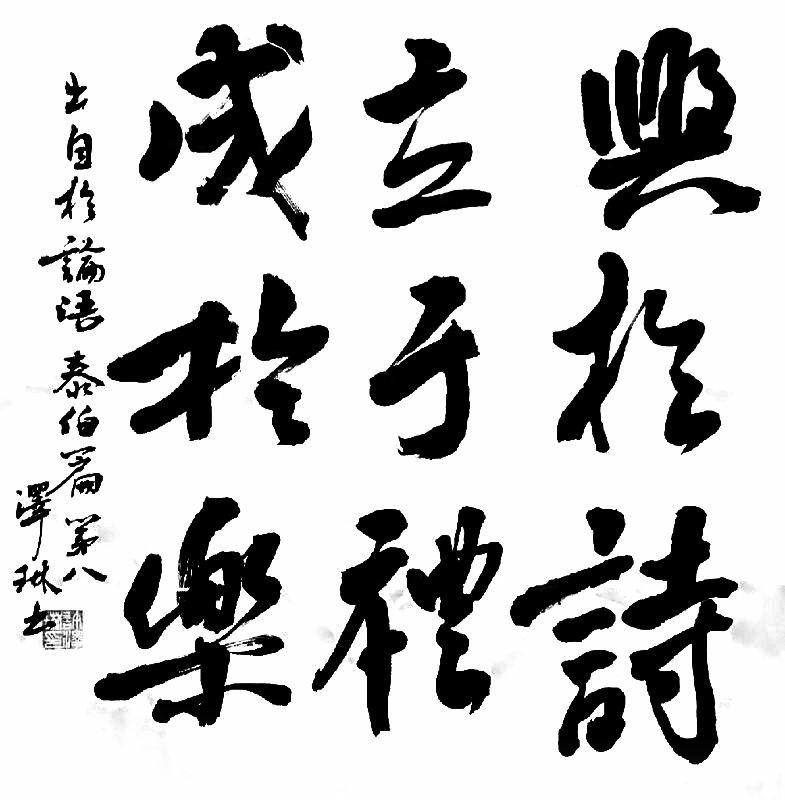 興於詩
立于禮
成於樂
出自於論語泰伯篇第八
澤琳书